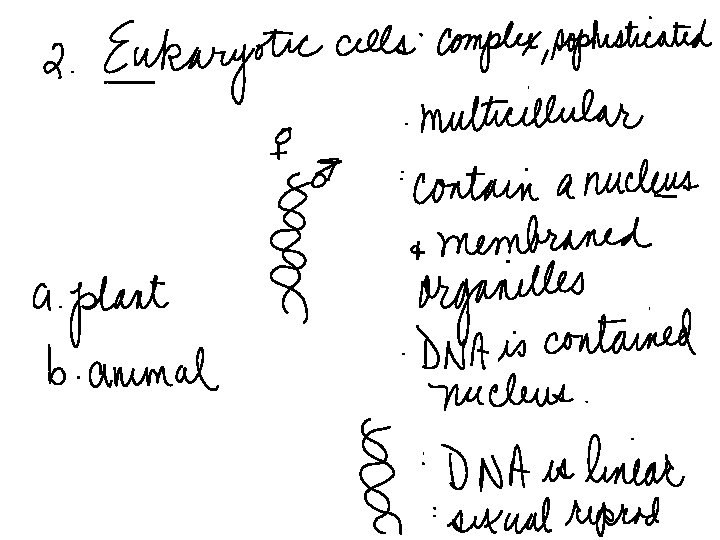 2. Eukaryotic cells: complex, sophisticated
· multicillular
: contain a nucleus
+ membraned
organilles
a. plant
b. animal
· DNA is contained
nucleus.
: DNA is linear
: sexual reprod